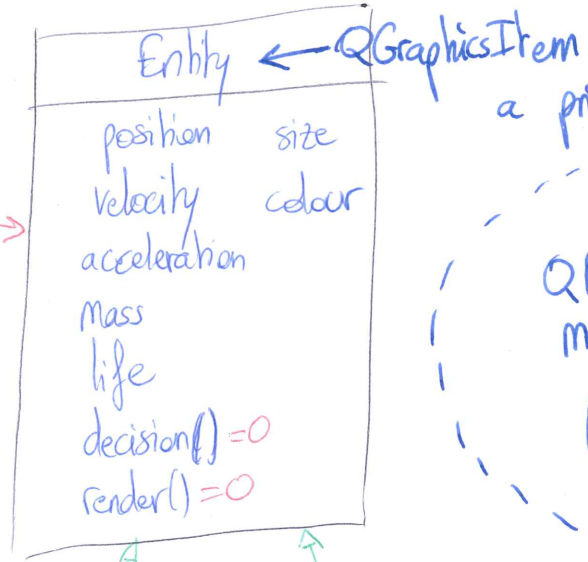 Entity ← QGraphicsItem
a
position size
velocity colour
acceleration
Mass
life
decision() =0
render() =0